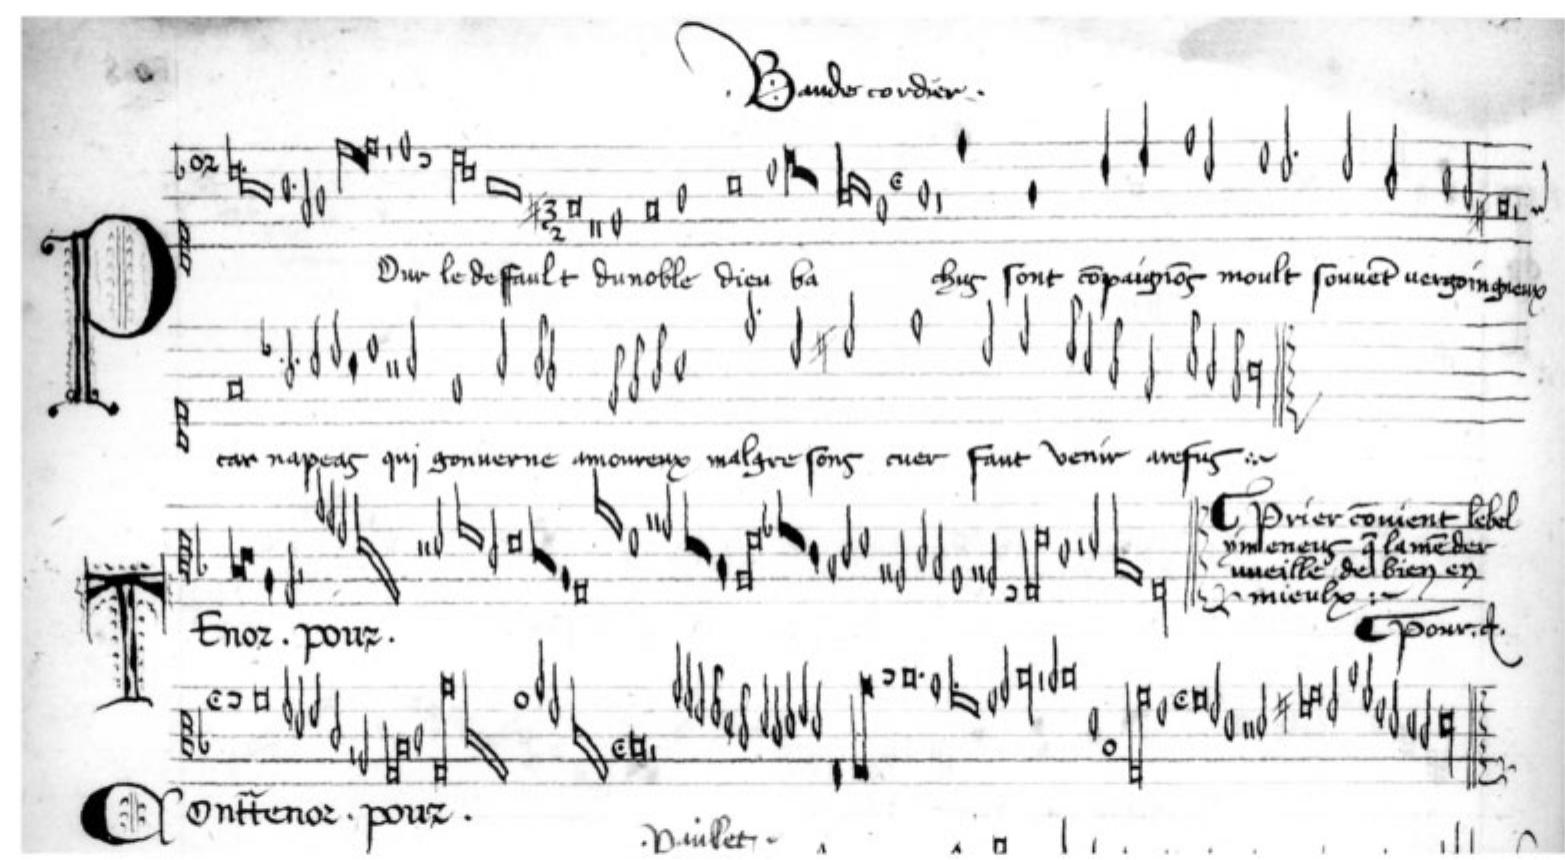 Baude cordier.
POur le deffault du noble dieu bachus sont cōpaignōs moult souvēt vergoingneux
car napeas qui gouverne amoureux malgre sons cuer faut venir arefus
TEnor. pour.
Prier cōvient lebel
ymeneus q̄ lamēder
vueille de bien en
mieulx
Pour.
COnt̄tenor. pour.